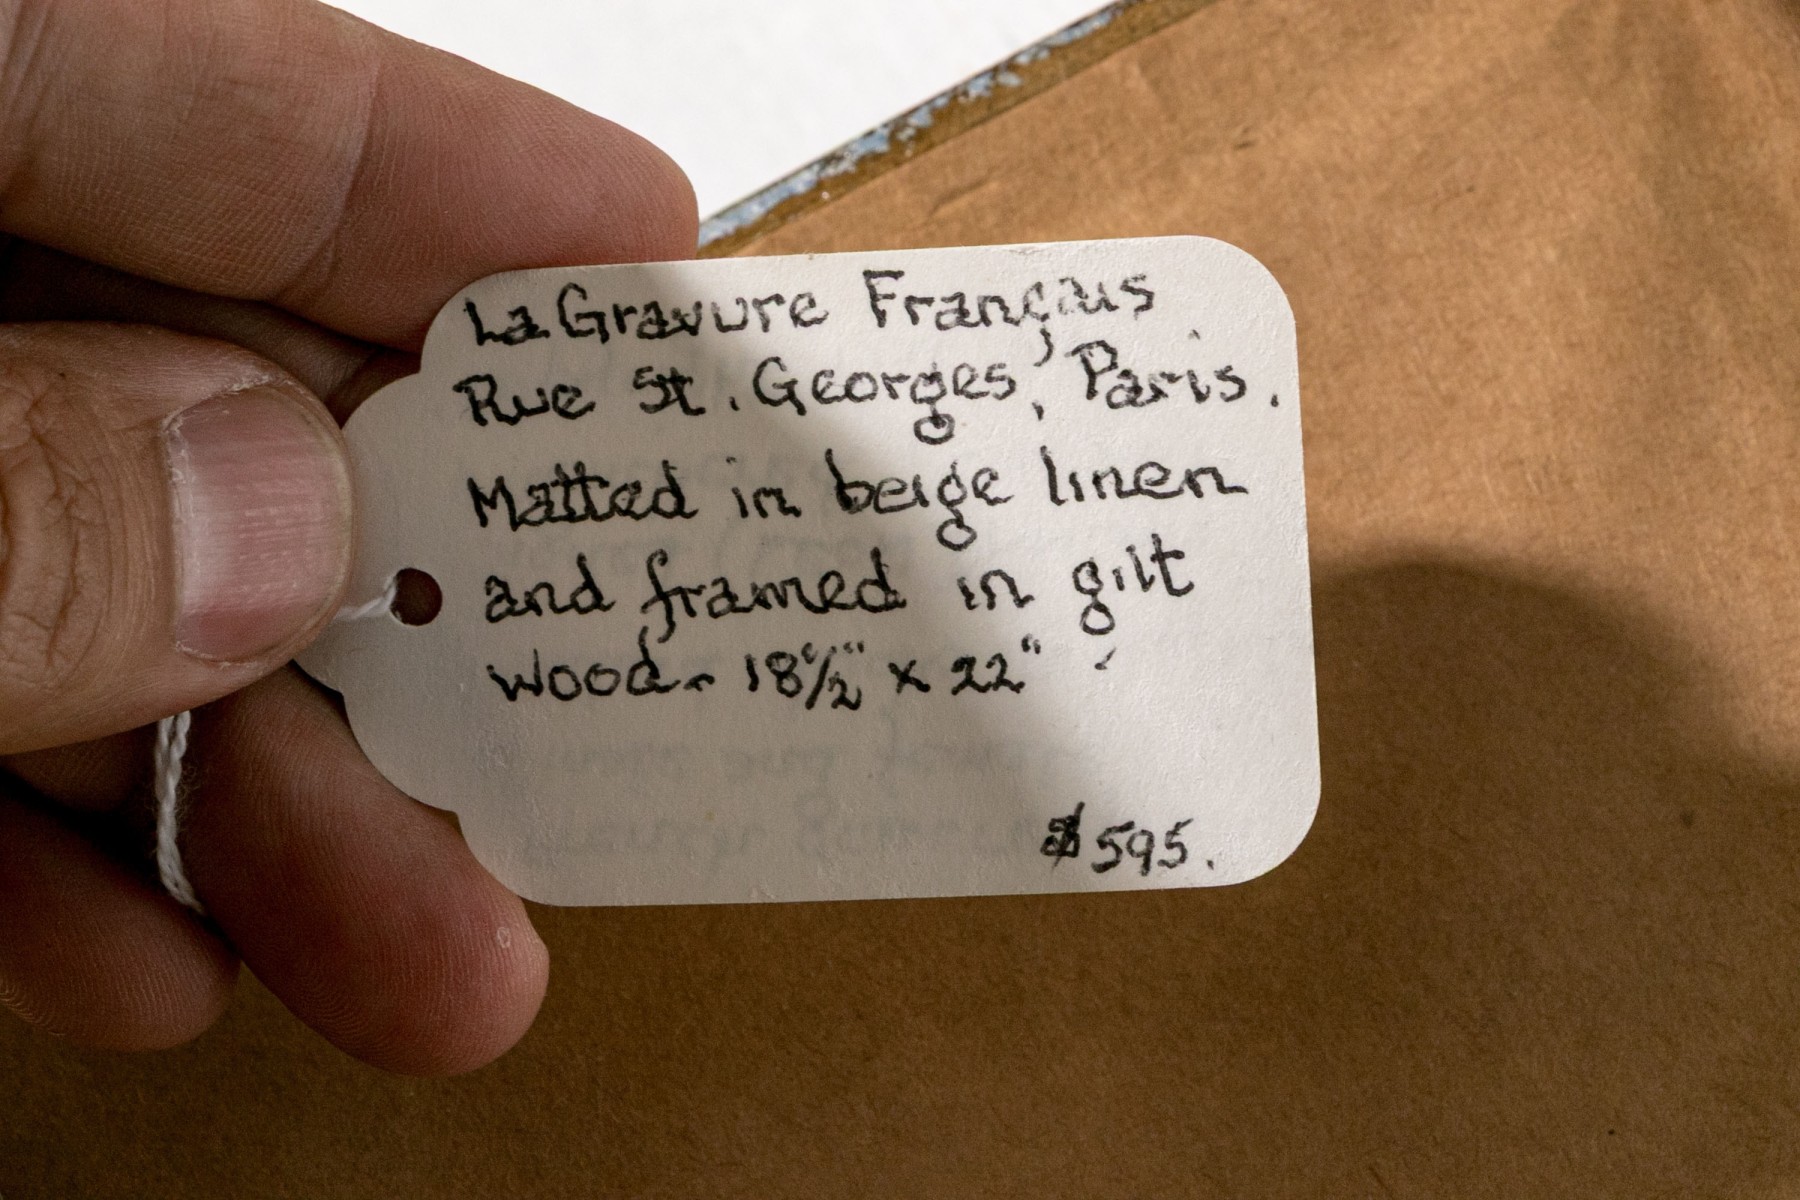 La Gravure Français,
Rue St. Georges, Paris.
Matted in beige linen
and framed in gilt
wood - 18 1/2" x 22"
$595.